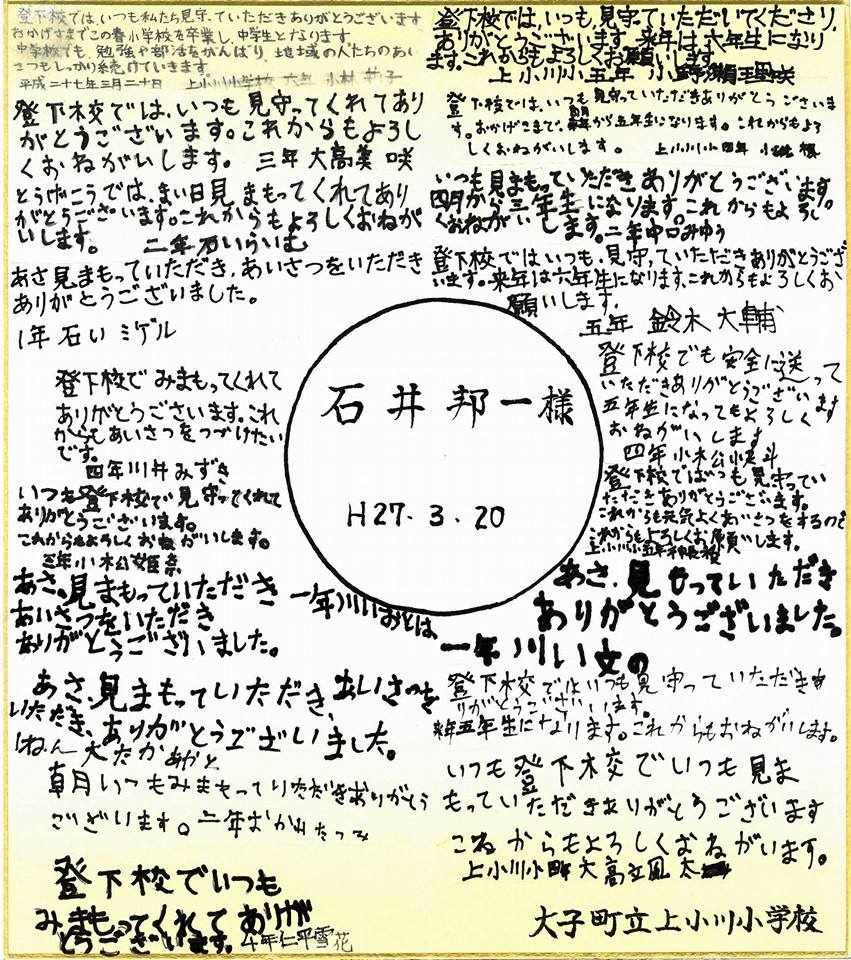 登下校では、いつも私たち見守っていただきありがとうございます
おかげさまでこの春小学校を卒業し、中学生となります。
中学校でも、勉強や部活をがんばり、地域の人たちのあい
さつもしっかり続けていきます。
平成二十七年三月二十日 上小川小学校 六年 小林
登下校では、いつも見守ってくれてあり
がとうございます。これからもよろし
くおねがいします。 三年 大高美咲
とうげこうでは、まい日見まもってくれてあり
がとうございます。これからもよろしくおねが
いします。 二年石いらいむ
あさ見まもっていただき、あいさつをいただき
ありがとうございました。
1年 石い ミゲル
登下校で みまもってくれて
ありがとうございます。これ
からもあいさつをつづけたい
です。
四年川井みずき
いつも登下校で見守ってくれて
ありがとうございます。
これからもよろしくおねがいします。
三年小松姫奈
あさ、見まもっていただき
あいさつをいただき
ありがとうございました。
一年川いおとは
あさ、見まもっていただき、あいさつを
いただき、ありがとうございました。
1ねん 大たか
朝いつもみまもっていただきありがとう
ございます。二年
登下校でいつも
みまもってくれてありが
とうございます。 4年仁平雪花
石井邦一様
H27.3.20
登下校では、いつも、見守っていただいてくださり、
ありがとうございます。来年は、六年生になり
ます。これからもよろしくお願いします。
上小川小五年 小野瀬
登下校では、いつも見守っていただきありがとうございま
す。おかげさまで、から五年生になります。これからもよろ
しくおねがいします。 上小川小四年
いつも見まもっていただきありがとうございます。
四月から三年生になります。これからもよろし
くおねがいします。二年中口みゆう
登下校ではいつも、見守っていただきありがとうござ
います。来年は六年生になります。これからもよろしくお
願いします。
五年 鈴木大輔
登下校でも安全に送って
いただきありがとうございます
五年生になってもよろしく
おねがいします
四年小松
登下校ではいつも見守ってい
ただきありがとうございます。
これからも元気よくあいさつをするので
これからもよろしくお願いします。
上小川小五年
あさ、見もっていただき
ありがとうございました。
一年 川い 文の
登下校ではいつも見守っていただきあ
りがとうございます。
来年五年生になります。これからもおねがいします。
いつも登下校でいつも見ま
もっていただきありがとうございます
これからもよろしくおねがいます。
上小川小 大高
大子町立上小川小学校